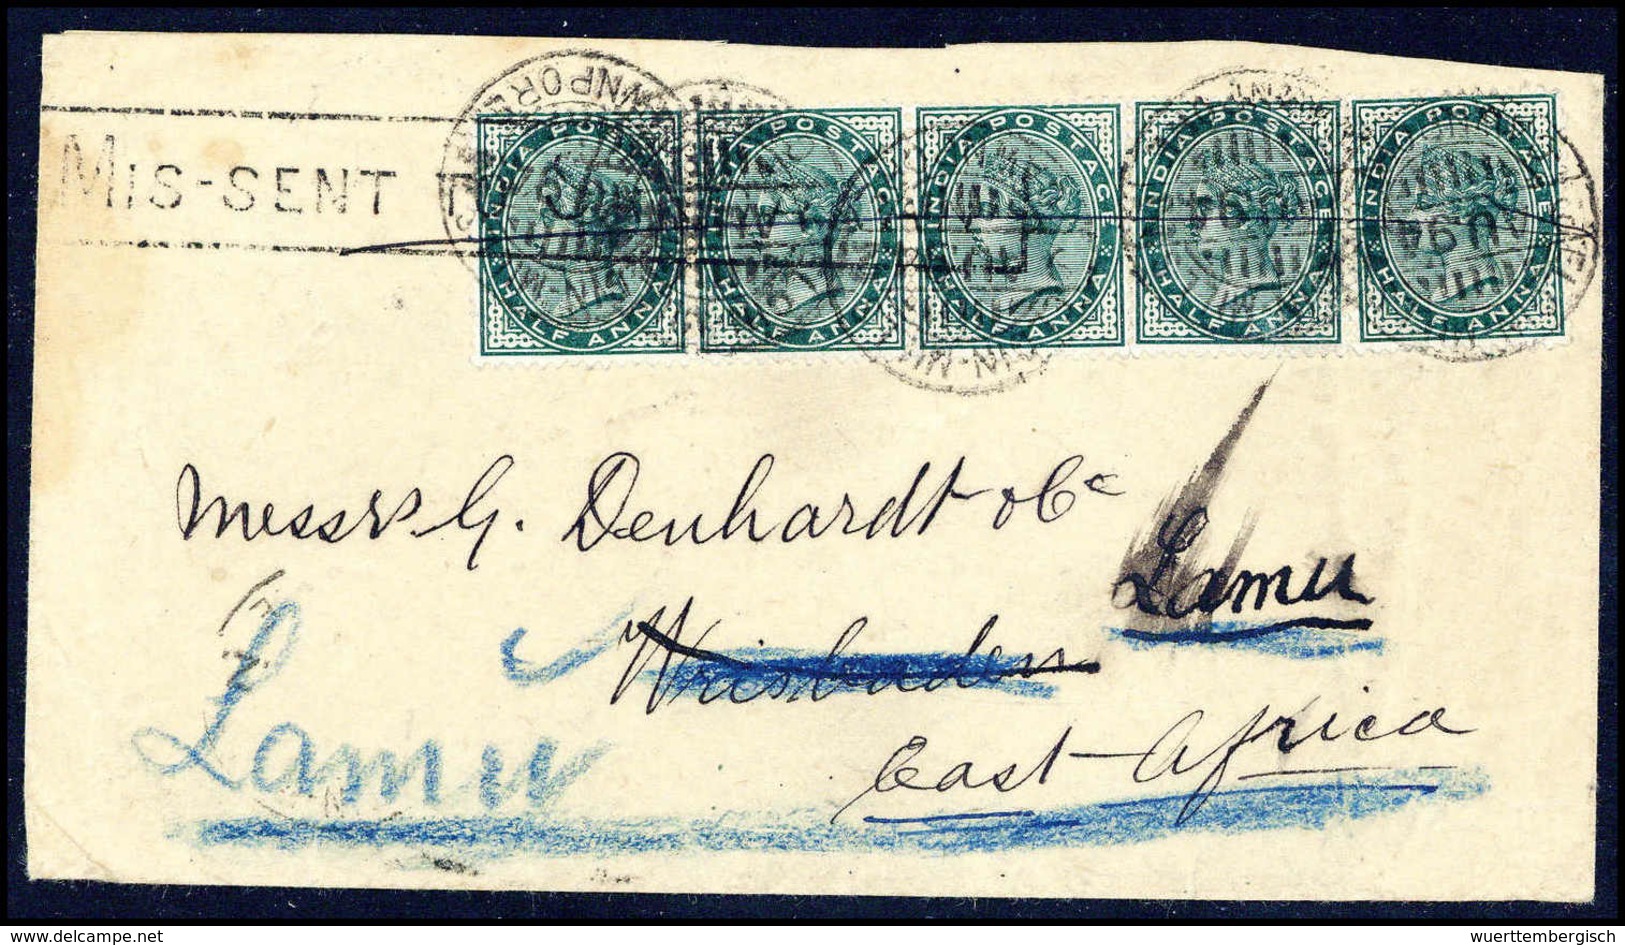 CAWNPORE
MIS-SENT TO
INDIA POSTAGE
HALF ANNA
INDIA POSTAGE
HALF ANNA
INDIA POSTAGE
HALF ANNA
INDIA POSTAGE
HALF ANNA
INDIA POSTAGE
HALF ANNA
Messrs G. Denhardt & Co
Lamu
Wiesbaden
East Africa
Lamu
© delcampe.net
wuerttembergisch